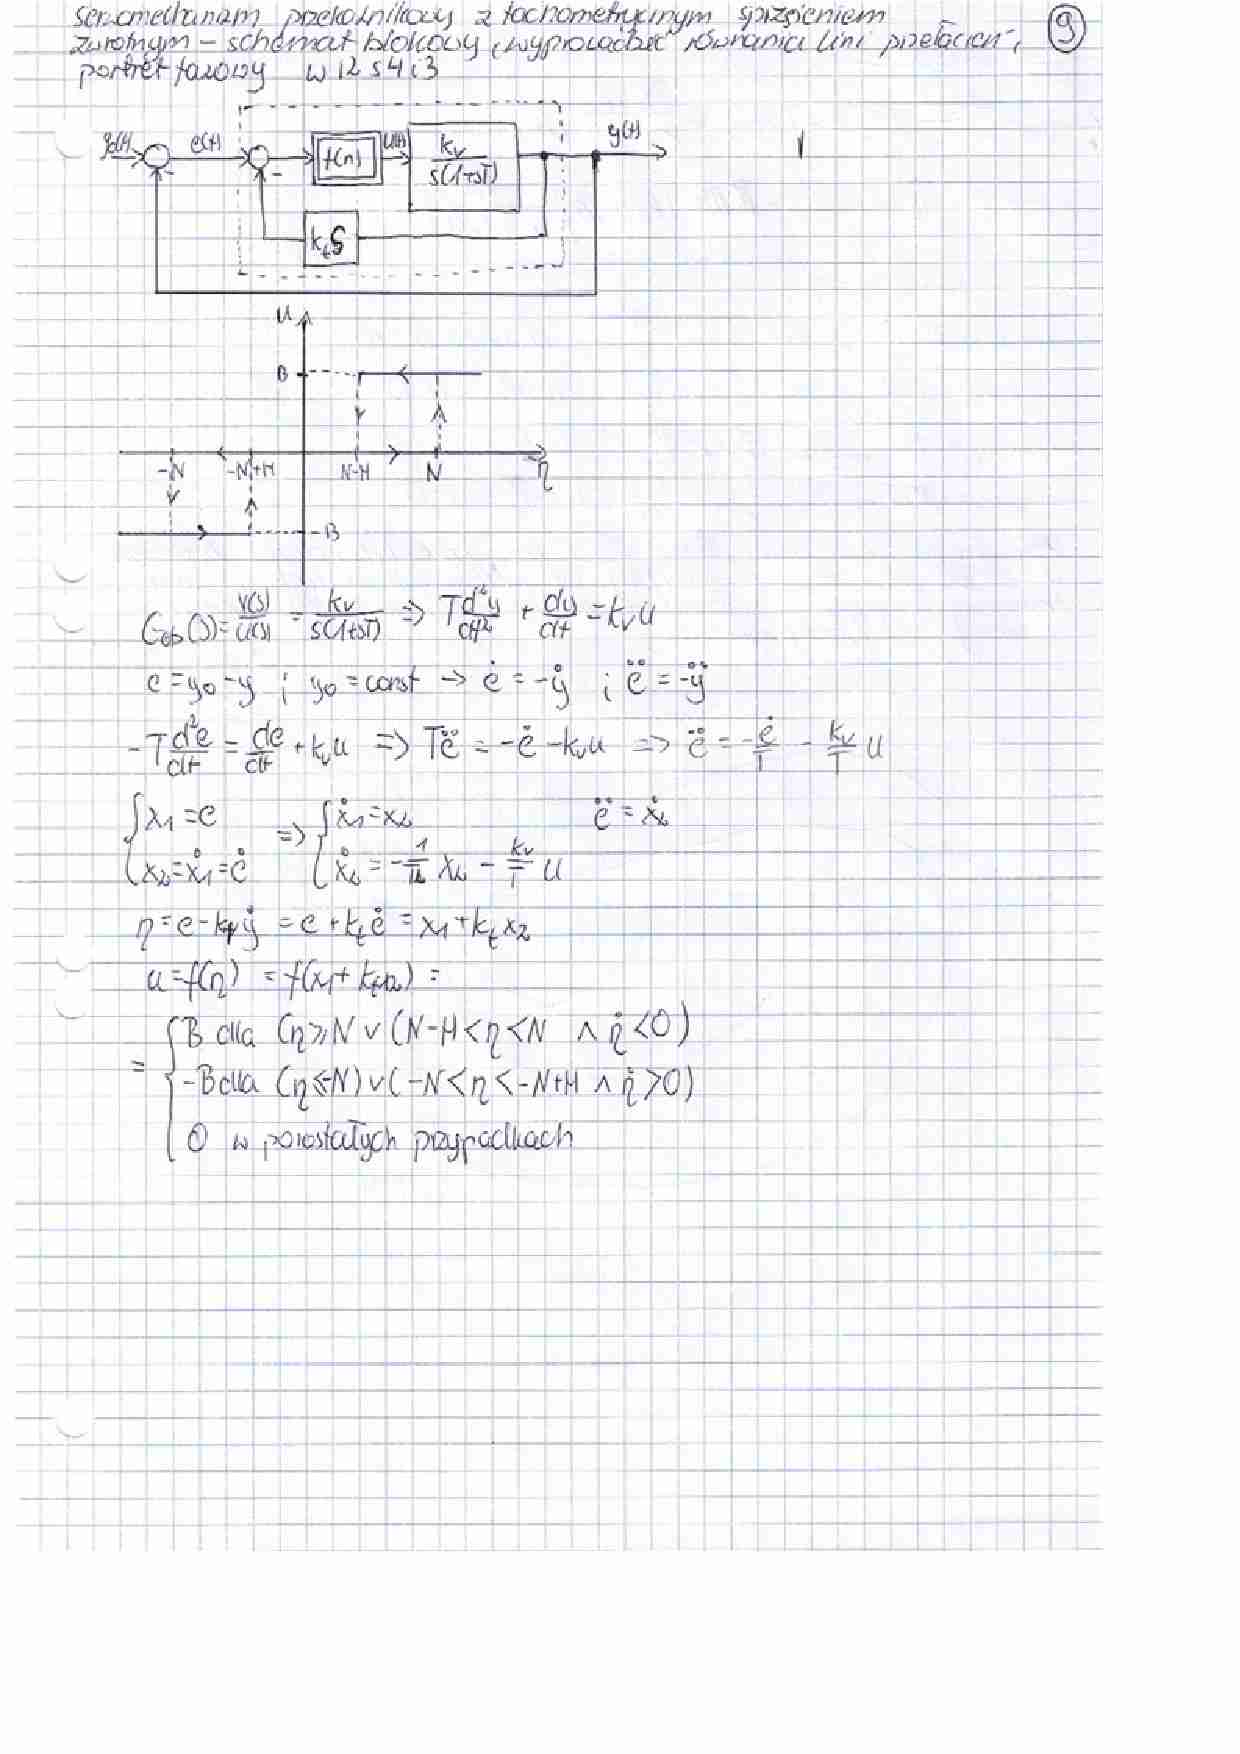 serwomechanizm przekaźnikowy z tachometrycznym sprzężeniem
zwrotnym - schemat blokowy, wyprowadzić równania lini przełączeń,
portret fazowy w12 s4 i 3
9
y₀(t) e(t) f(η) u(t) kᵥ/s(1+sT) y(t)
- -
kₜs
u
B
-N -N+H N-H N η
-B
G_ob(s) = Y(s)/U(s) = kᵥ/s(1+sT) => T d²y/dt² + dy/dt = kᵥu
e = y₀ - y ; y₀ = const -> ė = -ẏ ; ë = -ÿ
-T d²e/dt = de/dt + kᵥu => Të = -ė - kᵥu => ë = -ė/T - kᵥ/T u
{ x₁ = e => { ẋ₁ = x₂ ë = ẋ₂
x₂ = ẋ₁ = ė ẋ₂ = -1/T x₂ - kᵥ/T u
η = e - kₜẏ = e + kₜė = x₁ + kₜx₂
u = f(η) = f(x₁ + kₜx₂) =
= { B dla (η ≥ N ∨ (N-H < η < N ∧ η̇ < 0)
-B dla (η ≤ -N) ∨ (-N < η < -N+H ∧ η̇ > 0)
0 w pozostałych przypadkach